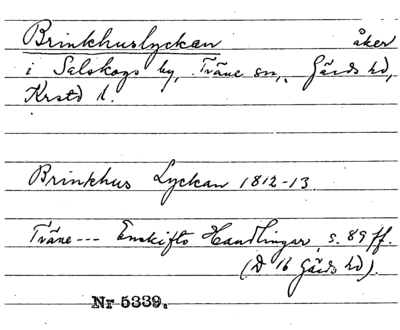 Brinkhuslyckan åker
i Salskogs by, Träne sn., Gärds hd,
Krstd l.
Brinkhus Lyckan 1812-13.
Träne --- Enskifts Handlingar, s. 89 ff.
(D 16 Gärds hd).
Nr 5339.